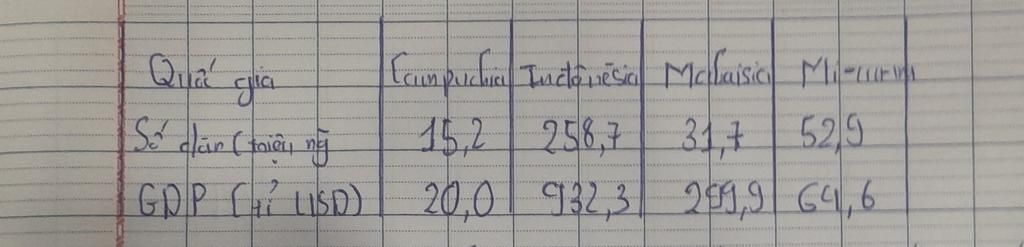 Quốc gia Campuchia Inđônêsia Malaisia Mi-anma
Số dân (triệu ng 15,2 258,7 31,7 52,9
GDP (tỉ USD) 20,0 932,3 299,9 64,6